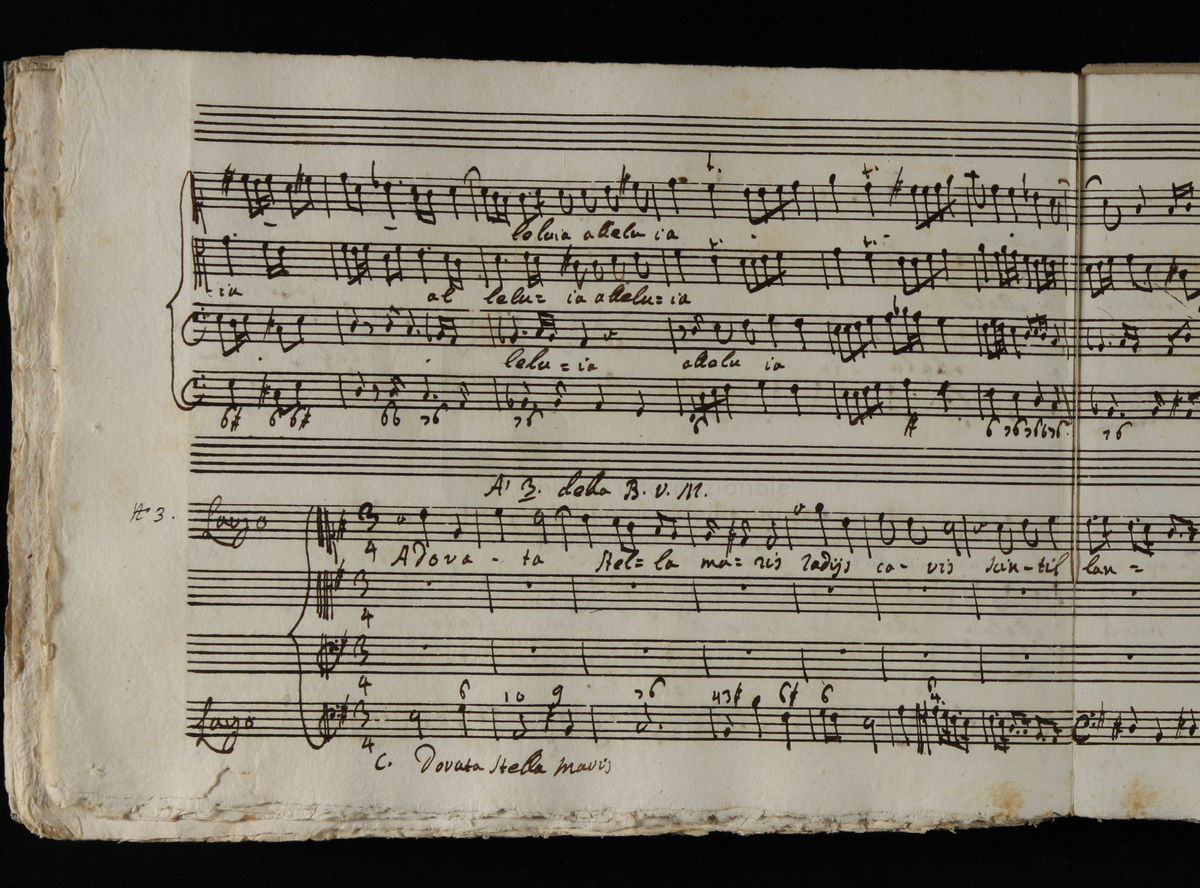 leluia allelu ia
ia al lelu= ia allelu=ia
lelu=ia allelu ia
6# 6 6# 66 76 76 6 # 6 76 76 6 76 76
A' 3. della B. V. M.
No 3. Largo 3 4
Adora - ta stel=la ma=ris radijs ca-ris scin-til lan=
3 4
3 4
6 10 9 76 43# 6# 6 6 4
Largo 3 4
C. Dorata stella maris